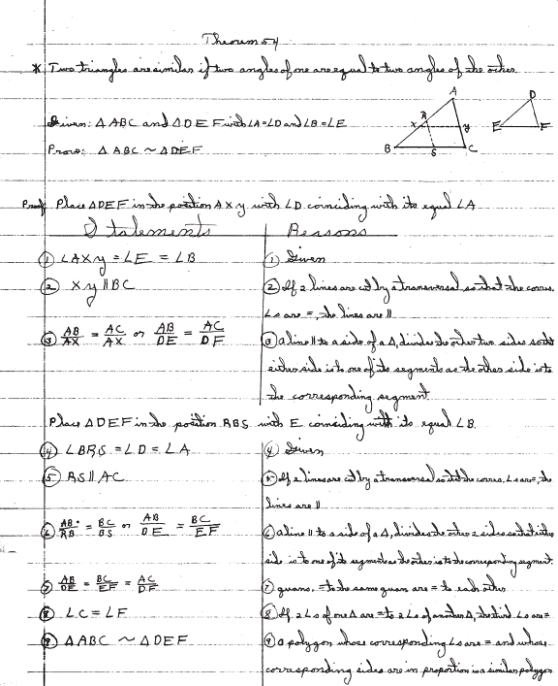 Theorem 54
* Two triangles are similar if two angles of one are equal to two angles of the other.
Given: △ABC and △DEF with ∠A=∠D and ∠B=∠E
Prove: △ABC ~ △DEF
A
R
X
y
B
S
C
D
E
F
Proof Place △DEF in the position AXy with ∠D coinciding with its equal ∠A
Statements
Reasons
① ∠AXy = ∠E = ∠B
① Given
② Xy ∥ BC
② If 2 lines are cut by a transversal so that the corres.
∠s are =, the lines are ∥
③ AB/AX = AC/AX or AB/DE = AC/DF
③ a line ∥ to a side of a △, divides the other two sides so that
either side is to one of its segments as the other side is to
the corresponding segment.
Place △DEF in the position RBS with E coinciding with its equal ∠B.
④ ∠BRS = ∠D = ∠A
④ Given
⑤ RS ∥ AC
⑤ If 2 lines are cut by a transversal so that the corres. ∠s are =, the
lines are ∥
⑥ AB/RB = BC/BS or AB/DE = BC/EF
⑥ a line ∥ to a side of a △, divides the other 2 sides so that either
side is to one of its segments as the other is to the corresponding segment.
⑦ AB/DE = BC/EF = AC/DF
⑦ quans. = to the same quan are = to each other
⑧ ∠C = ∠F
⑧ If 2 ∠s of one △ are = to 2 ∠s of another △, the third ∠s are =
⑨ △ABC ~ △DEF
⑨ a polygon whose corresponding ∠s are = and whose
corresponding sides are in proportion is a similar polygon